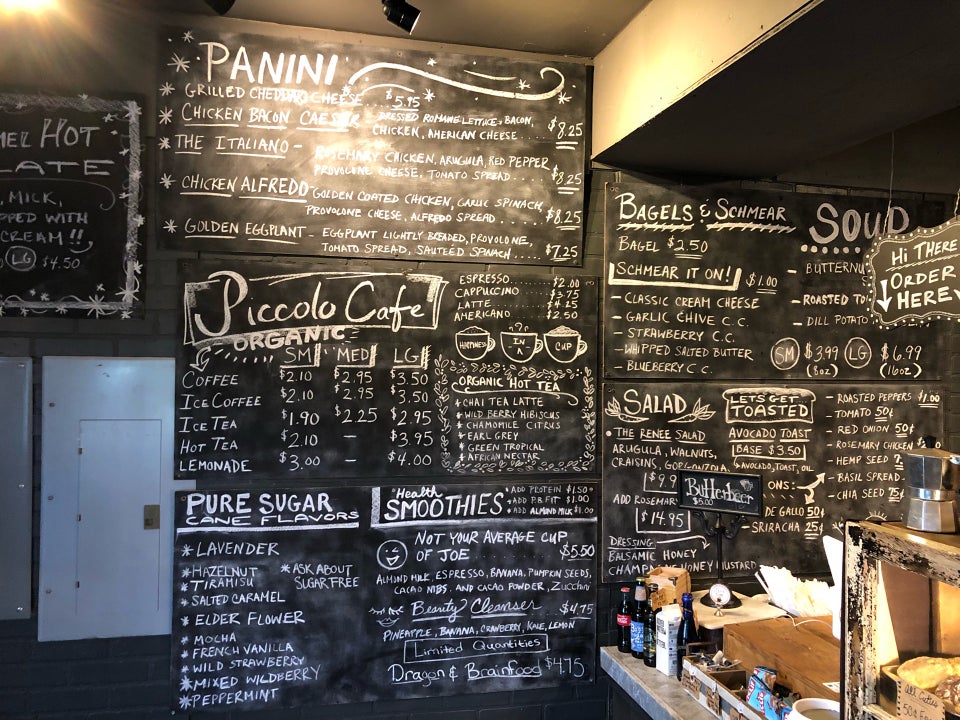 PANINI
GRILLED CHEDDAR CHEESE .... $5.95
CHICKEN BACON CAESAR - DRESSED ROMAINE LETTUCE, BACON,
CHICKEN, AMERICAN CHEESE .... $8.25
THE ITALIANO - ROSEMARY CHICKEN, ARUGULA, RED PEPPER
PROVOLONE CHEESE, TOMATO SPREAD .... $8.25
CHICKEN ALFREDO - GOLDEN COATED CHICKEN, GARLIC SPINACH,
PROVOLONE CHEESE, ALFREDO SPREAD .... $8.25
GOLDEN EGGPLANT - EGGPLANT LIGHTLY BREADED, PROVOLONE,
TOMATO SPREAD, SAUTEED SPINACH .... $7.25
HOT
LATE
MILK,
PPED WITH
CREAM!!
LG $4.50
Piccolo Cafe
ORGANIC
SM MED LG
COFFEE $2.10 $2.95 $3.50
ICE COFFEE $2.10 $2.95 $3.50
ICE TEA $1.90 $2.25 $2.95
HOT TEA $2.10 — $3.95
LEMONADE $3.00 — $4.00
ESPRESSO ..... $2.00
CAPPUCCINO ..... $3.75
LATTE ..... $4.25
AMERICANO .... $2.50
HAPPINESS IN A CUP
ORGANIC HOT TEA
CHAI TEA LATTE
WILD BERRY HIBISCUS
CHAMOMILE CITRUS
EARL GREY
GREEN TROPICAL
AFRICAN NECTAR
PURE SUGAR
CANE FLAVORS
LAVENDER
HAZELNUT
TIRAMISU
SALTED CARAMEL
ELDER FLOWER
MOCHA
FRENCH VANILLA
WILD STRAWBERRY
MIXED WILDBERRY
PEPPERMINT
ASK ABOUT
SUGAR FREE
Health
SMOOTHIES
ADD PROTEIN $1.50
ADD P.B FIT $1.00
ADD ALMOND MILK $1.00
NOT YOUR AVERAGE CUP
OF JOE ........ $5.50
ALMOND MILK, ESPRESSO, BANANA, PUMPKIN SEEDS,
CACAO NIBS. AND CACAO POWDER, Zucchini
Beauty Cleanser .... $4.75
PINEAPPLE, BANANA, CRANBERRY, KALE, LEMON
Limited Quantities
Dragon & Brainfood $4.75
BAGELS & SCHMEAR
BAGEL $2.50
SCHMEAR IT ON! $1.00
- CLASSIC CREAM CHEESE
- GARLIC CHIVE C.C.
- STRAWBERRY C.C.
- WHIPPED SALTED BUTTER
- BLUEBERRY C.C.
SOUP
- BUTTERNU
- ROASTED TO
- DILL POTATO
SM $3.99 LG $6.99
(8oz) (16oz)
HI THERE
ORDER
HERE
SALAD
THE RENEE SALAD
ARUGULA, WALNUTS,
CRAISINS, GORGONZOLA
$9.9
ADD ROSEMAR
$14.95
DRESSING
BALSAMIC HONEY
CHAMP HONEY MUSTARD
LET'S GET
TOASTED
AVOCADO TOAST
BASE $3.50
AVOCADO, TOAST, OIL
ONS:
- ROASTED PEPPERS $1.00
- TOMATO 50¢
- RED ONION 50¢
- ROSEMARY CHICKEN
- HEMP SEED
- BASIL SPREAD
- CHIA SEED 75¢
DE GALLO 50¢
- SRIRACHA 25¢
Butterbeer
$5.00